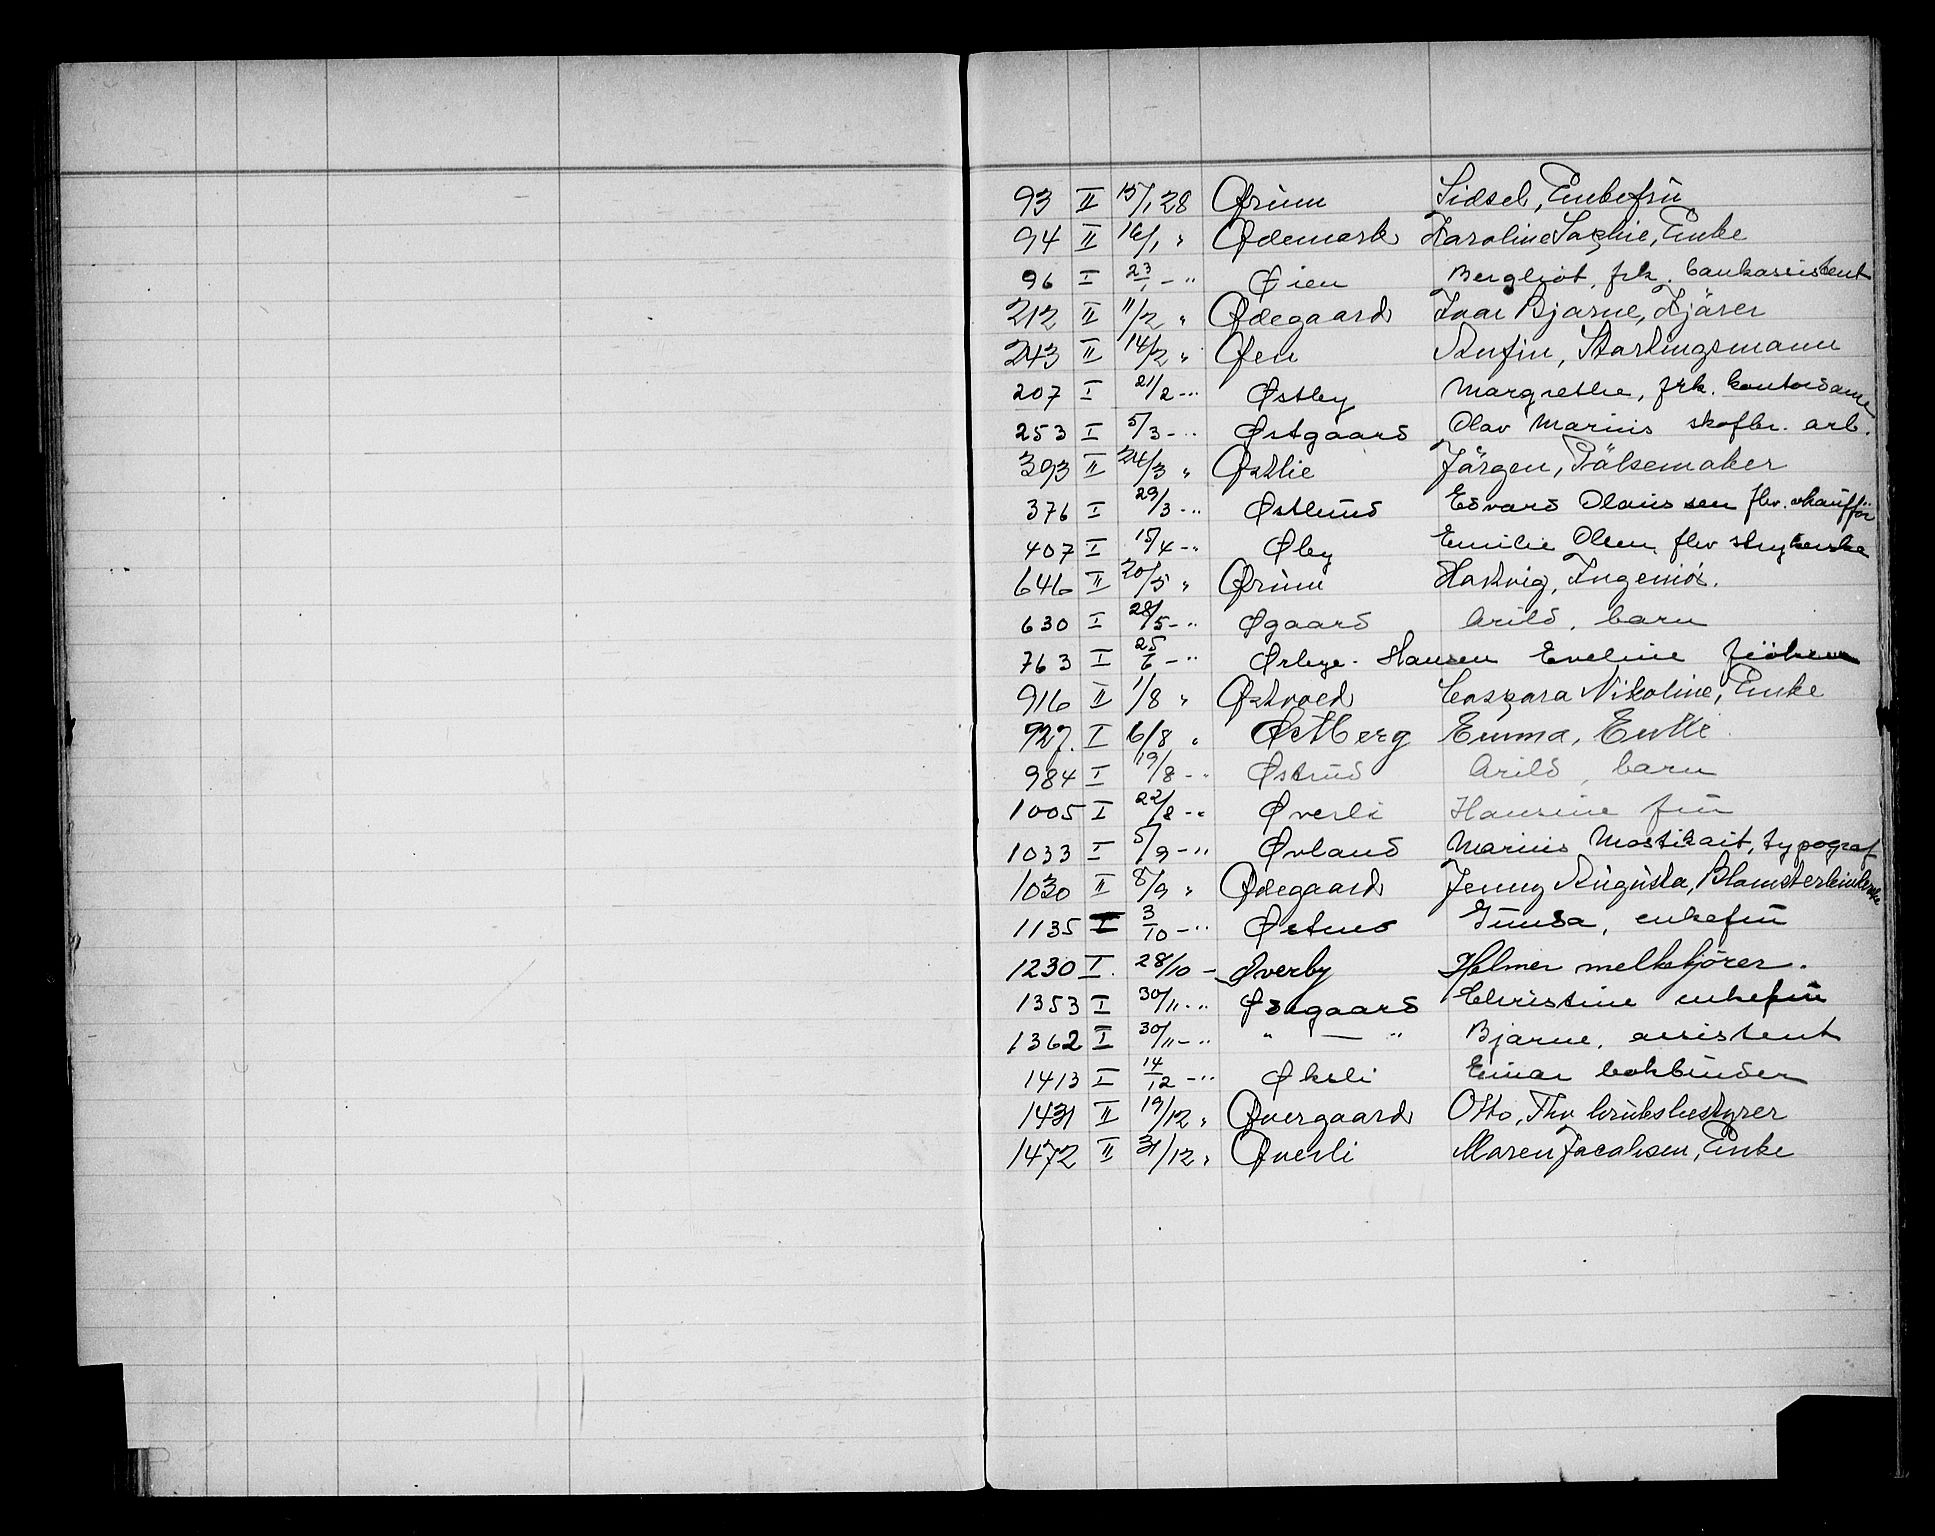 93 II 15/1 28 Ørum Sidsel, Enkefru
94 II 16/1 " Ødemark Karoline Sophie, Enke
96 I 23/1 - " Øien Bergliot, frk. bankassistent
212 II 11/2 " Ødegaard Ivar Bjarne, Kjører
243 II 14/2 " Øen Anfin, Starlingsmann
207 I 21/2 - " Østby Margrethe, frk. kontordame
253 I 5/3 - " Østgaard Olav Marius skofbr. arb.
393 II 24/3 " Østlie Jørgen, Pølsemaker
376 I 29/3 - " Østlund Edvard Olaussen fhv. chauffør
407 I 15/4 - " Øby Emilie Olsen, fhv strykerske
646 II 20/5 " Ørum Hartvig, Ingeniør.
630 I 28/5 - " Øgaard Arild, barn
763 I 25/6 - " Ørbye-Hansen Eveline frøken
916 II 1/8 " Østvold Caspara Nikoline, Enke
927. I 6/8 " Østberg Emma, Enke
984 I 19/8 - " Østrud Arild, barn
1005 I 22/8 - " Øverli Hansine fru
1033 I 5/9 - " Øvland Marius, typograf
1030 II 8/9 " Ødegaard Jenny Augusta, Blomsterbinderske
1135 I 3/10 - " Østmo Gunda, enkefru
1230 I. 28/10 - Øverby Helmer melkekjører.
1353 I 30/11 - " Ødegaard Christine enkefru
1362 I 30/11 - " " — " Bjarne, assistent
1413 I 14/12 - " Øksli Einar bokbinder
1431 II 19/12 " Øvergaard Otto, Thv bruksbestyrer
1472 II 31/12 " Øverli Maren Jacobsen, Enke